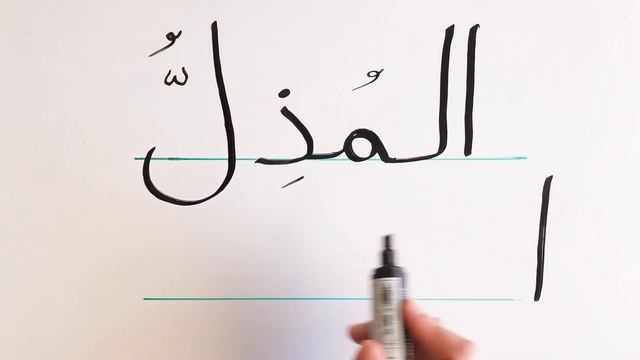 المُذِلُّ
ا